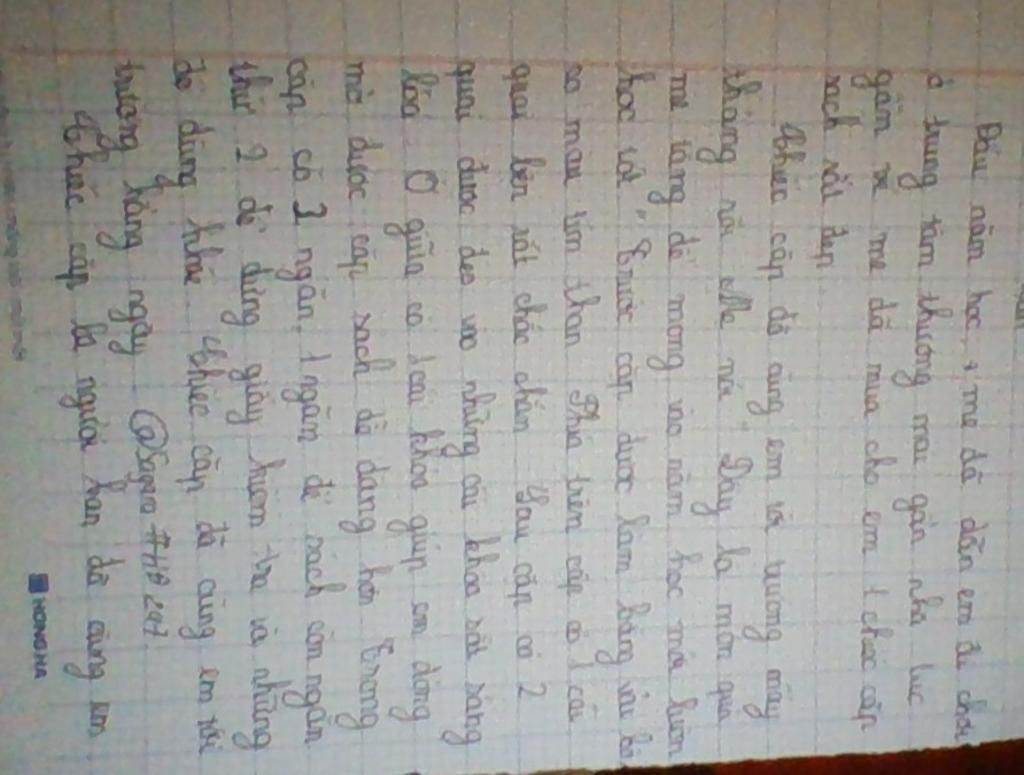 Đầu năm học, mẹ đã dẫn em đi chơi
ở trung tâm thương mại gần nhà lúc
gần về mẹ đã mua cho em 1 chiếc cặp
sách rất đẹp.
Chiếc cặp đã cùng em tới trường mấy
tháng rồi Mẹ nói " Đây là món quà
mẹ tặng để mong vào năm học mới luôn
học tốt" Chiếc cặp được làm bằng vải bò
màu tím than Phía trên cặp có 1 cái
quai bên rất chắc chắn Sau cặp có 2
quai được đeo vào những cái khóa rất sáng
loá Ở giữa có 1 cái khóa giúp em đóng
mở được cặp sách dễ dàng hơn Trong
cặp có 3 ngăn, 1 ngăn để sách còn ngăn
thứ 2 để đựng giấy kiểm tra và những
đồ dùng khác Chiếc cặp đã cùng em tới
trường hằng ngày @Sapia #HB247
Chiếc cặp là người bạn đã cùng em
HONG HA